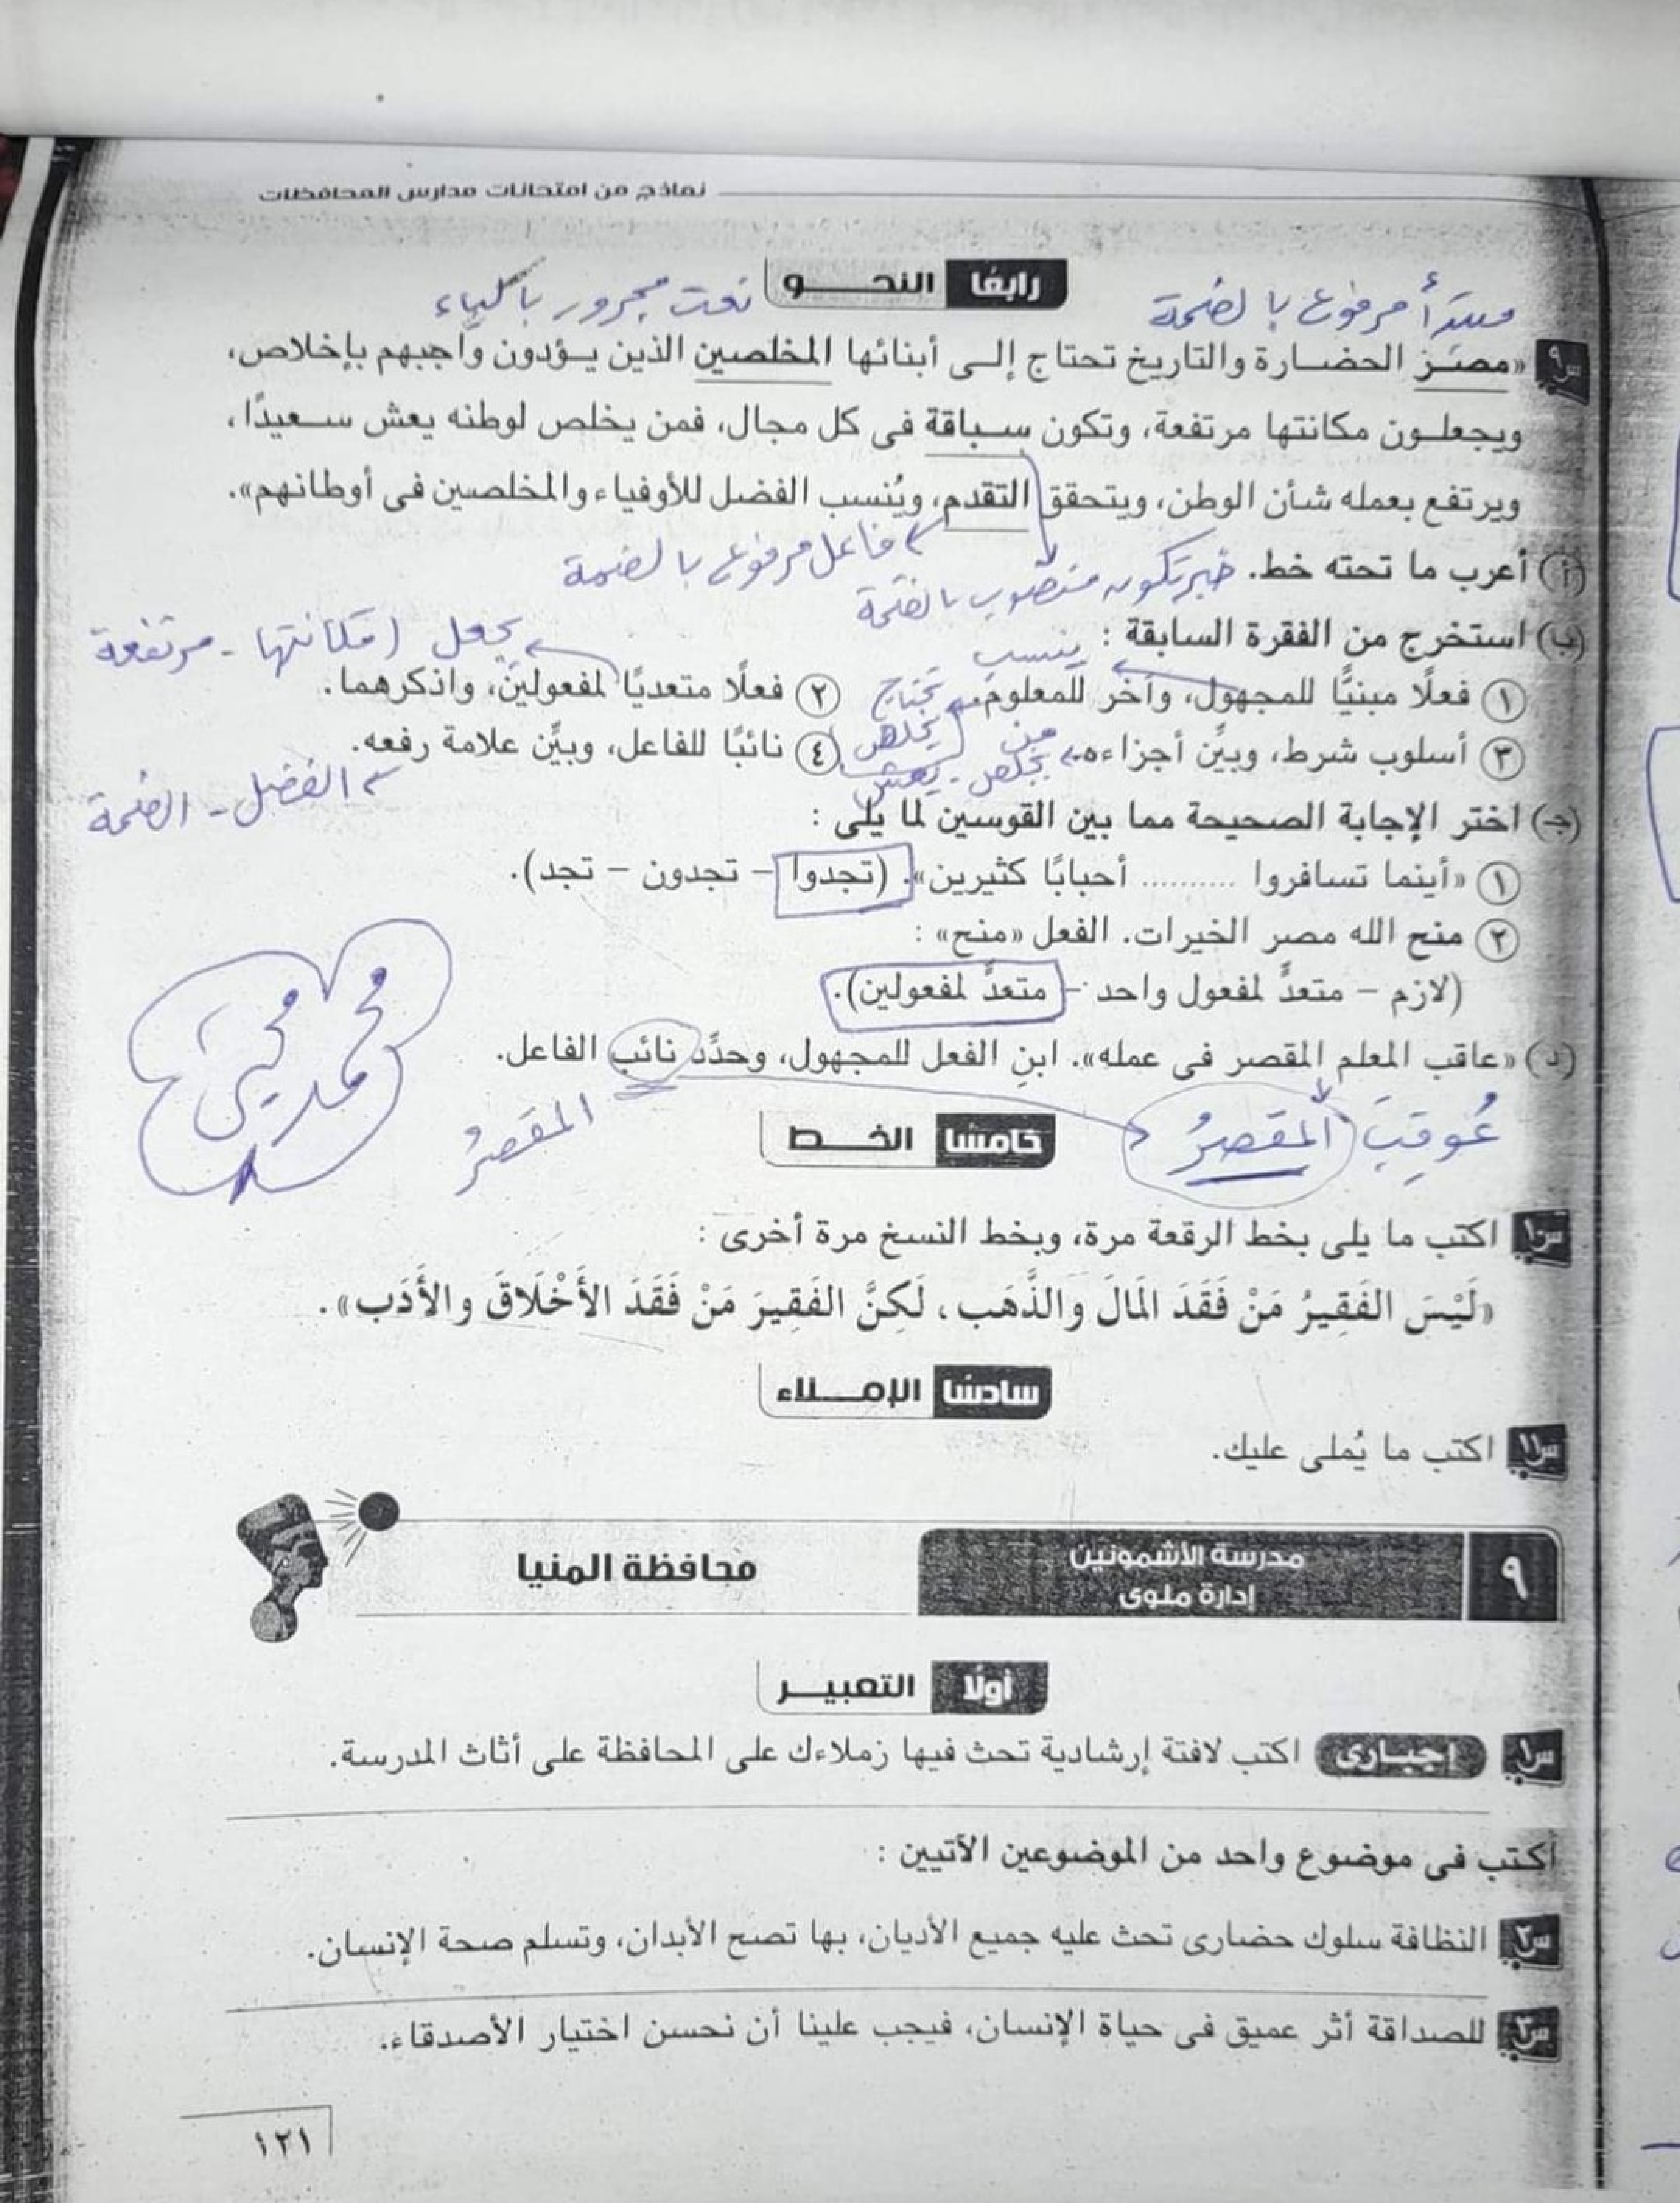 نماذج من امتحانات مدارس المحافظات
رابعًا النحـــو
مبتدأ مرفوع بالضمة
نعت مجرور بالياء
س٩ «مصـر الحضـارة والتاريخ تحتاج إلـى أبنائها المخلصين الذين يـؤدون واجبهم بإخلاص،
ويجعلـون مكانتها مرتفعة، وتكون سـباقة فى كل مجال، فمن يخلص لوطنه يعش سـعيدًا،
ويرتفع بعمله شأن الوطن، ويتحقق التقدم، ويُنسب الفضل للأوفياء والمخلصين فى أوطانهم».
فاعل مرفوع بالضمة
(أ) أعرب ما تحته خط.
خبر تكون منصوب بالفتحة
(ب) استخرج من الفقرة السابقة :
ينسب
يجعل (مكانتها - مرتفعة
١ فعلًا مبنيًّا للمجهول، وآخر للمعلوم.
تحتاج
٢ فعلًا متعديًا لمفعولين، واذكرهما.
٣ أسلوب شرط، وبيِّن أجزاءه.
من يخلص
يخلص - يعش
٤ نائبًا للفاعل، وبيِّن علامة رفعه.
الفضل - الضمة
(جـ) اختر الإجابة الصحيحة مما بين القوسين لما يلى :
١ «أينما تسافروا .......... أحبابًا كثيرين». (تجدوا – تجدون – تجد).
٢ منح الله مصر الخيرات. الفعل «منح» :
(لازم – متعدٍّ لمفعول واحد – متعدٍّ لمفعولين).
محمد محيى
(د) «عاقب المعلم المقصر فى عمله». ابنِ الفعل للمجهول، وحدِّد نائب الفاعل.
عُوقِبَ المقصرُ
المقصرُ
خامسًا الخـــط
س١٠ اكتب ما يلى بخط الرقعة مرة، وبخط النسخ مرة أخرى :
«لَيْسَ الفَقِيرُ مَنْ فَقَدَ المَالَ والذَّهَب، لَكِنَّ الفَقِيرَ مَنْ فَقَدَ الأَخْلَاقَ والأَدَب».
سادسًا الإمـــلاء
س١١ اكتب ما يُملى عليك.
٩ مدرسة الأشمونين
إدارة ملوى
محافظة المنيا
أولًا التعبيـــر
س١ إجبارى اكتب لافتة إرشادية تحث فيها زملاءك على المحافظة على أثاث المدرسة.
اكتب فى موضوع واحد من الموضوعين الآتيين :
س٢ النظافة سلوك حضارى تحث عليه جميع الأديان، بها تصح الأبدان، وتسلم صحة الإنسان.
س٣ للصداقة أثر عميق فى حياة الإنسان، فيجب علينا أن نحسن اختيار الأصدقاء.
١٢١